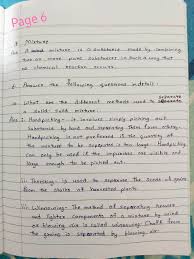 Page 6
3 Mixture
Ans A mixture is a substance made by combining
two or more pure substances in such a way that
no chemical reaction occurs.
B. Answer the following questions in detail.
a. What are the different methods used to separate
a solid mixture.
Ans i Handpicking - it involves simply picking out
substance by hand and separating them from others.
Handpicking - is the quantity of
the mixture to be separated is too large. Handpicking
Can only be used if the impurities are visible and
large enough to be picked out.
ii Threshing - is used to separate the seeds of grains
from the stalks of harvested plants.
iii. Winnowing - The method of separating heavier
and lighter components of a mixture by wind
or blowing air is called winnowing. Chaff from
the grains is separated by blowing air.